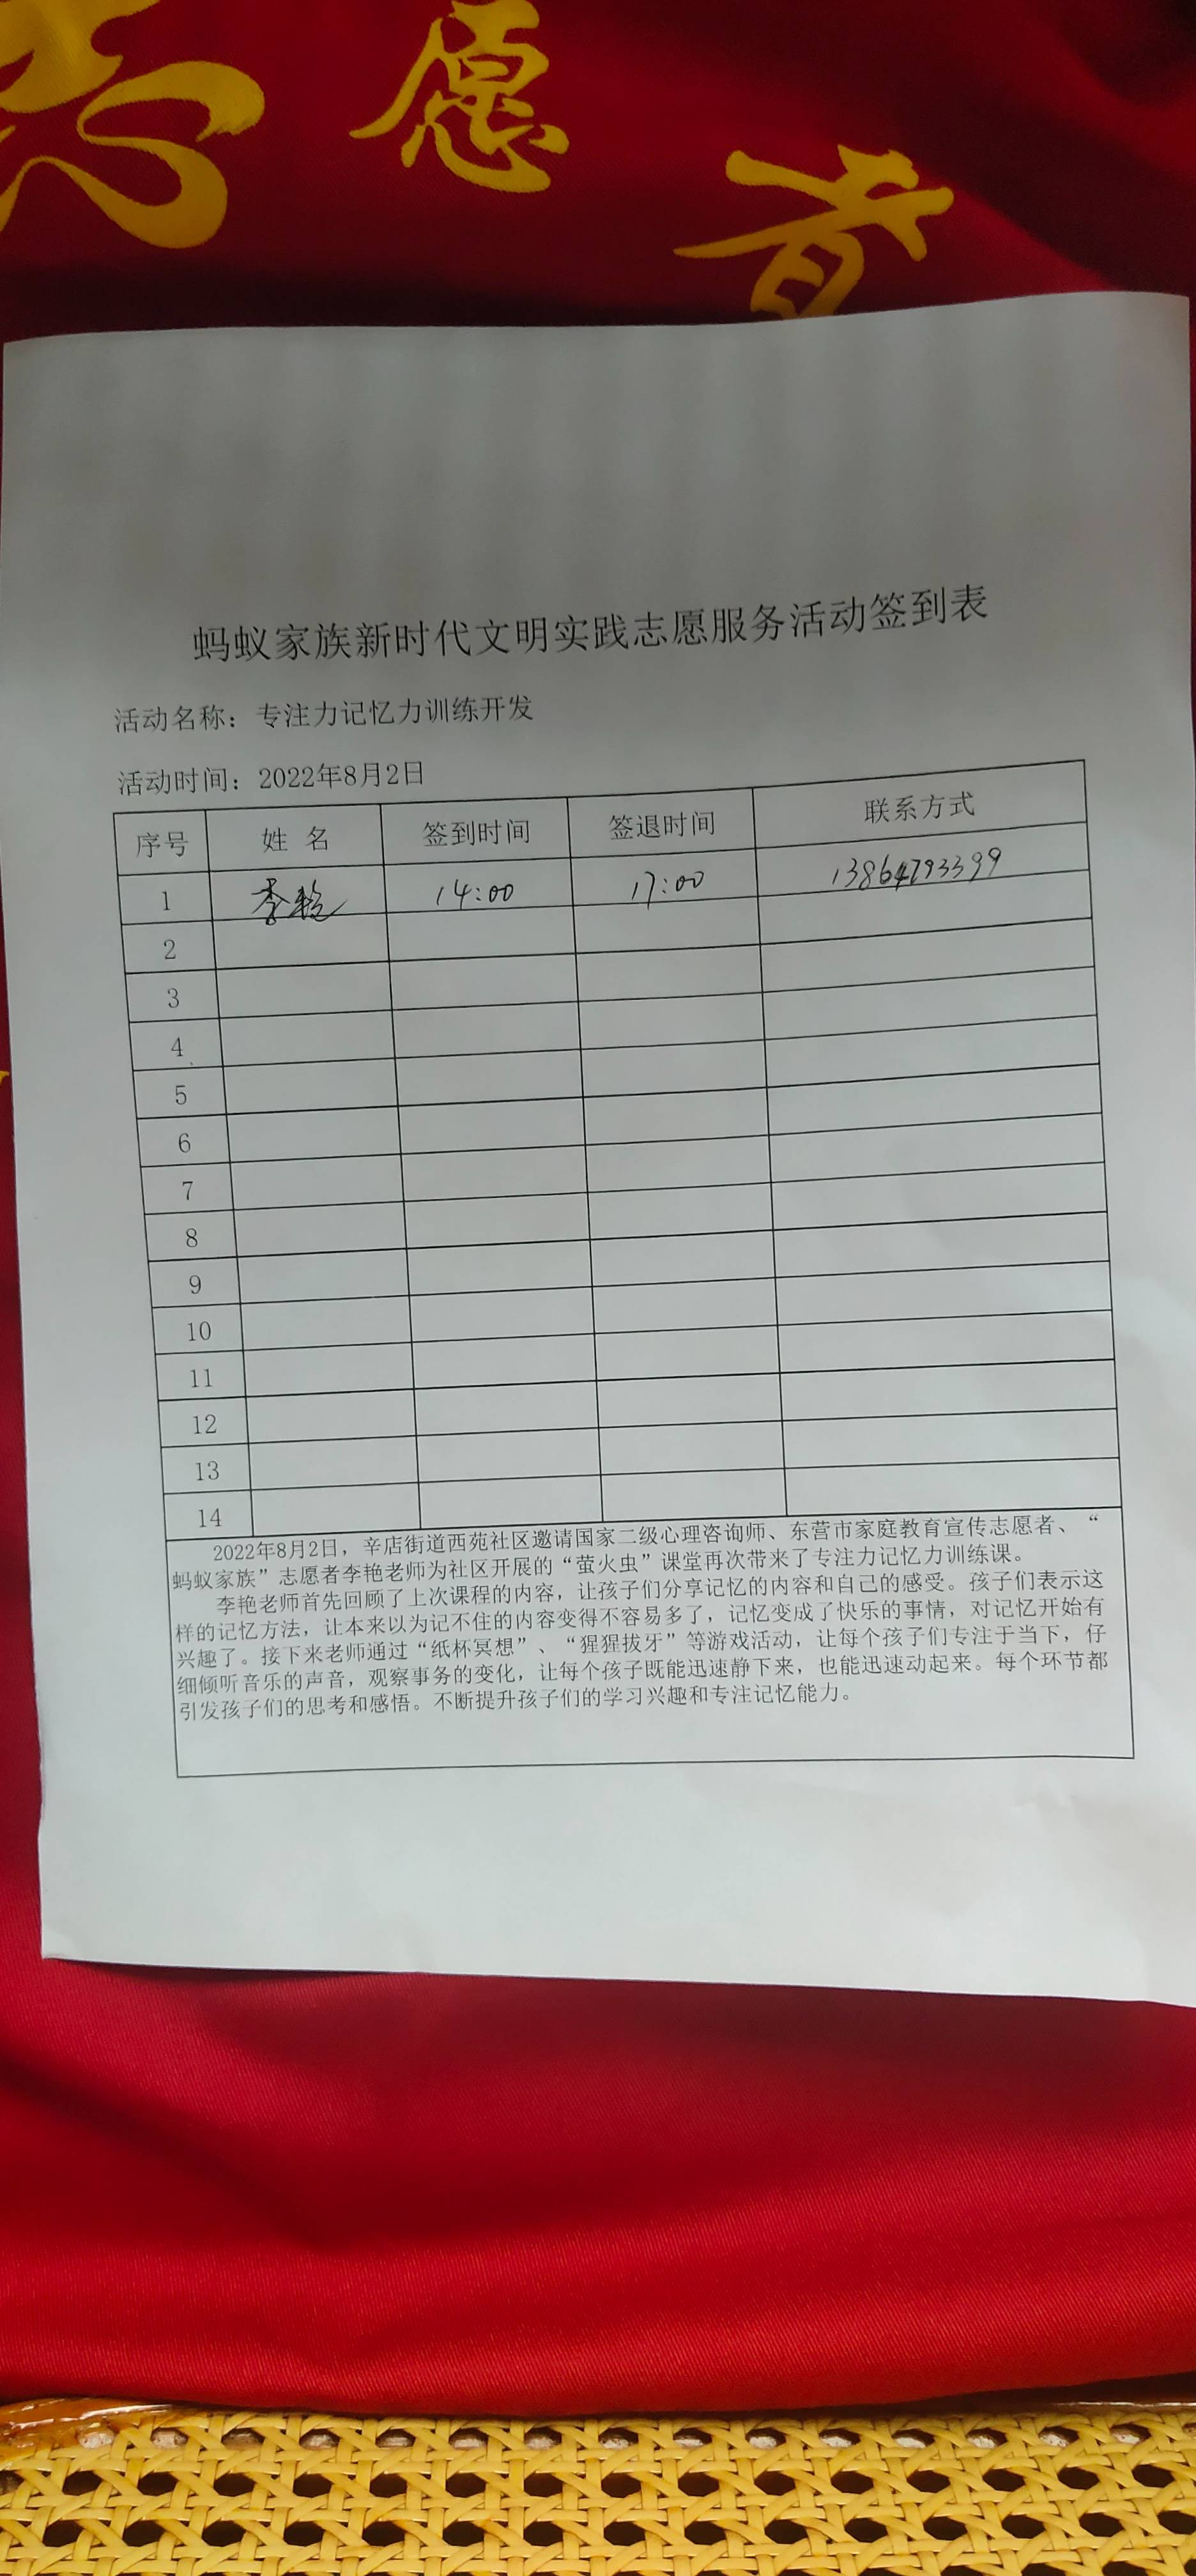 志愿者
蚂蚁家族新时代文明实践志愿服务活动签到表
活动名称：专注力记忆力训练开发
活动时间：2022年8月2日
序号 姓 名 签到时间 签退时间 联系方式
1 李艳 14:00 17:00 13864793399
2
3
4
5
6
7
8
9
10
11
12
13
14
2022年8月2日，辛店街道西苑社区邀请国家二级心理咨询师、东营市家庭教育宣传志愿者、“
蚂蚁家族”志愿者李艳老师为社区开展的“萤火虫”课堂再次带来了专注力记忆力训练课。
李艳老师首先回顾了上次课程的内容，让孩子们分享记忆的内容和自己的感受。孩子们表示这
样的记忆方法，让本来以为记不住的内容变得不容易多了，记忆变成了快乐的事情，对记忆开始有
兴趣了。接下来老师通过“纸杯冥想”、“猩猩拔牙”等游戏活动，让每个孩子们专注于当下，仔
细倾听音乐的声音，观察事务的变化，让每个孩子既能迅速静下来，也能迅速动起来。每个环节都
引发孩子们的思考和感悟。不断提升孩子们的学习兴趣和专注记忆能力。